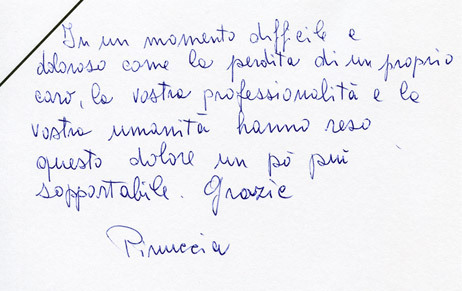 In un momento difficile e
doloroso come la perdita di un proprio
caro, la vostra professionalità e la
vostra umanità hanno reso
questo dolore un pò più
sopportabile. Grazie
Pinuccia